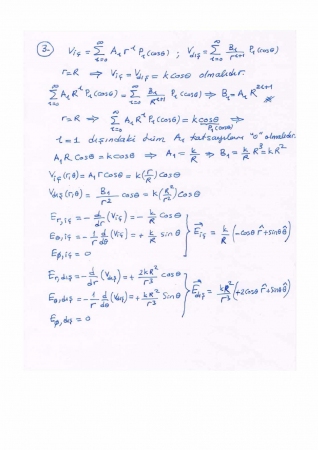 3. V_iç = ∑_{l=0}^{∞} A_l r^l P_l(cosθ) ; V_dış = ∑_{l=0}^{∞} B_l/r^{l+1} P_l(cosθ)
r=R ⇒ V_iç = V_dış = k cosθ olmalıdır.
∑_{l=0}^{∞} A_l R^l P_l(cosθ) = ∑_{l=0}^{∞} B_l/R^{l+1} P_l(cosθ) ⇒ B_l = A_l R^{2l+1}
r=R ⇒ ∑_{l=0}^{∞} A_l R^l P_l(cosθ) = k cosθ ⇒
P_1(cosθ)
l=1 dışındaki tüm A_l katsayıları "0" olmalıdır.
A_1 R cosθ = k cosθ ⇒ A_1 = k/R ⇒ B_1 = k/R R^3 = kR^2
V_iç(r,θ) = A_1 r cosθ = k(r/R) cosθ
V_dış(r,θ) = B_1/r^2 cosθ = k(R^2/r^2) cosθ
E_r,iç = - d/dr (V_iç) = - k/R cosθ
E_θ,iç = - 1/r d/dθ (V_iç) = + k/R sinθ } E⃗_iç = k/R (-cosθ r̂ + sinθ θ̂)
E_φ,iç = 0
E_r,dış = - d/dr (V_dış) = + 2kR^2/r^3 cosθ
E_θ,dış = - 1/r d/dθ (V_dış) = + kR^2/r^3 sinθ } E⃗_dış = kR^2/r^3 (+2cosθ r̂ + sinθ θ̂)
E_φ,dış = 0